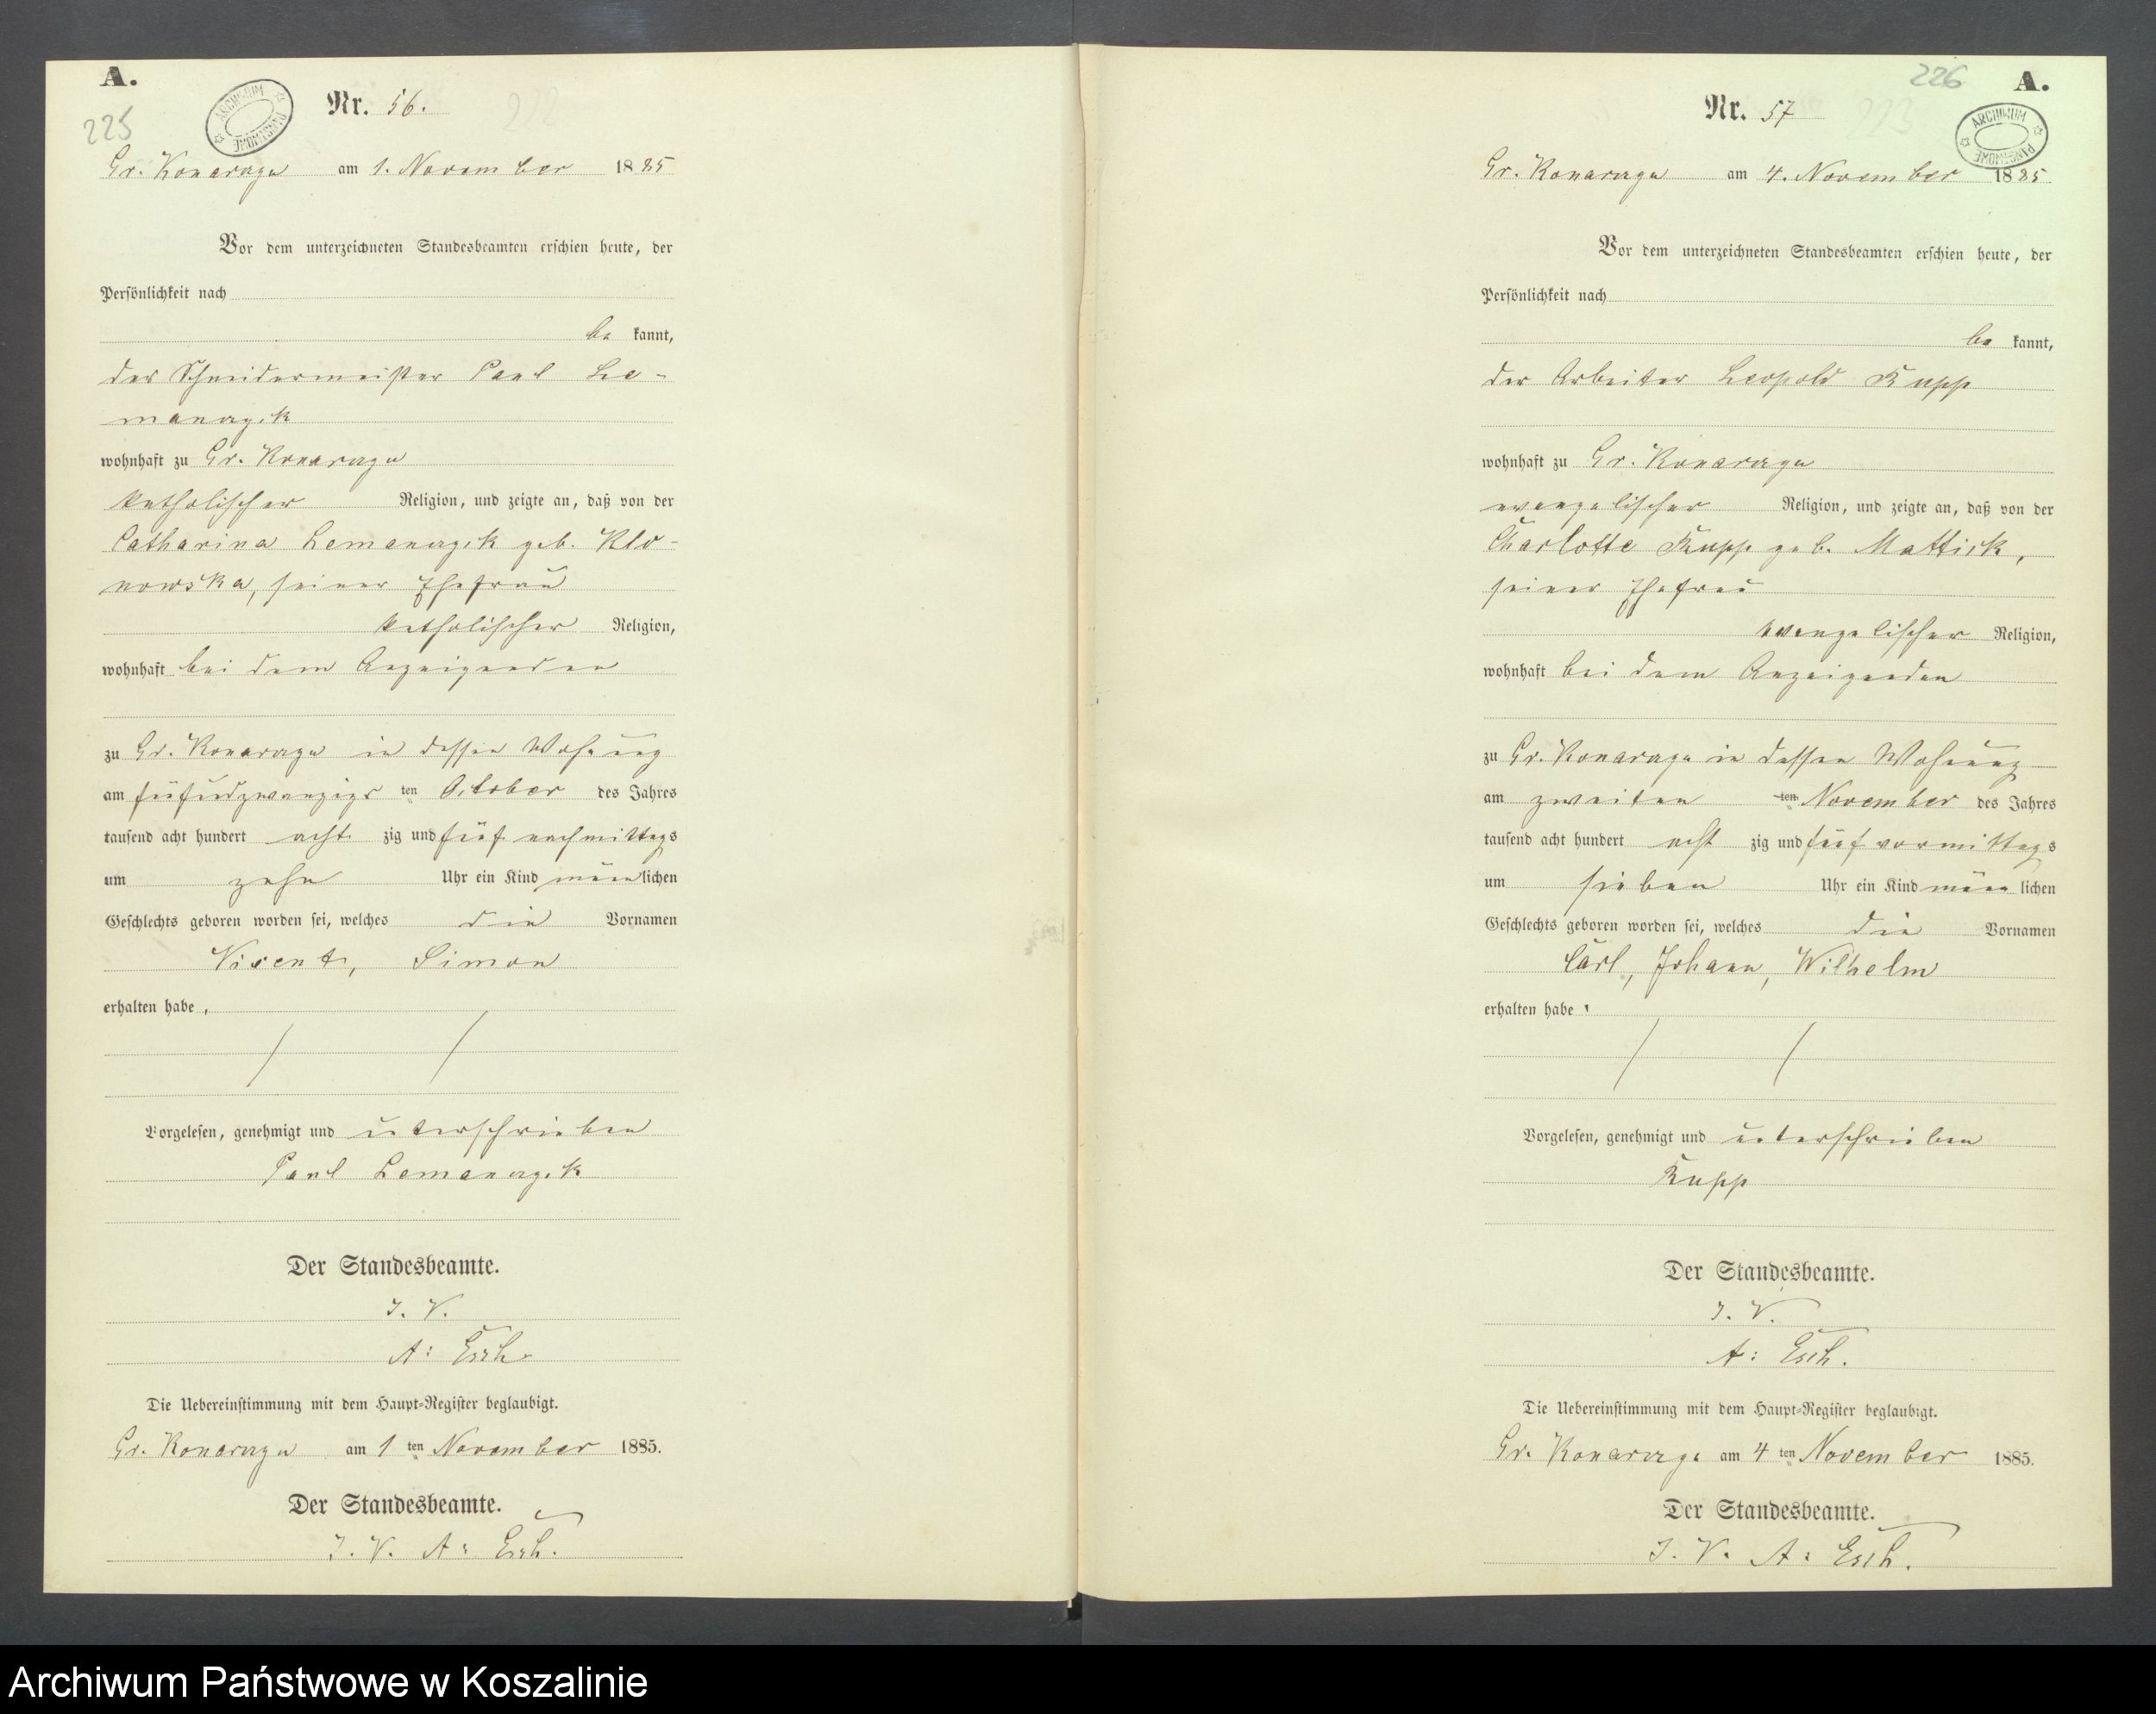 A.
225
ARCHIWUM PAŃSTWOWE
Nr. 56.
Gr. Konarczyn am 1. November 1885
Vor dem unterzeichneten Standesbeamten erschien heute, der
Persönlichkeit nach
be kannt,
der Schneidermeister Paul Le-
manczyk
wohnhaft zu Gr. Konarczyn
katholischer Religion, und zeigte an, daß von der
Catharina Lemanczyk geb. Klo-
nowska, seiner Ehefrau
katholischer Religion,
wohnhaft bei dem Anzeigenden
zu Gr. Konarczyn in dessen Wohnung
am fünfundzwanzigs ten October des Jahres
tausend acht hundert acht zig und fünf nachmittags
um zehn Uhr ein Kind männlichen
Geschlechts geboren worden sei, welches die Vornamen
Vicent, Simon
erhalten habe.
Vorgelesen, genehmigt und unterschrieben
Paul Lemanczyk
Der Standesbeamte.
I. V.
A: Esch.
Die Uebereinstimmung mit dem Haupt-Register beglaubigt.
Gr. Konarczyn am 1 ten November 1885.
Der Standesbeamte.
I. V. A: Esch.
226
A.
Nr. 57
ARCHIWUM PAŃSTWOWE
Gr. Konarczyn am 4. November 1885
Vor dem unterzeichneten Standesbeamten erschien heute, der
Persönlichkeit nach
be kannt,
der Arbeiter Leopold Kupp
wohnhaft zu Gr. Konarczyn
evangelischer Religion, und zeigte an, daß von der
Charlotte Kupp geb. Mattick,
seiner Ehefrau
evangelischer Religion,
wohnhaft bei dem Anzeigenden
zu Gr. Konarczyn in dessen Wohnung
am zweiten ten November des Jahres
tausend acht hundert acht zig und fünf vormittags
um sieben Uhr ein Kind männlichen
Geschlechts geboren worden sei, welches die Vornamen
Carl, Johann, Wilhelm
erhalten habe.
Vorgelesen, genehmigt und unterschrieben
Kupp
Der Standesbeamte.
I. V.
A: Esch.
Die Uebereinstimmung mit dem Haupt-Register beglaubigt.
Gr. Konarczyn am 4 ten November 1885.
Der Standesbeamte.
I. V. A: Esch.
Archiwum Państwowe w Koszalinie